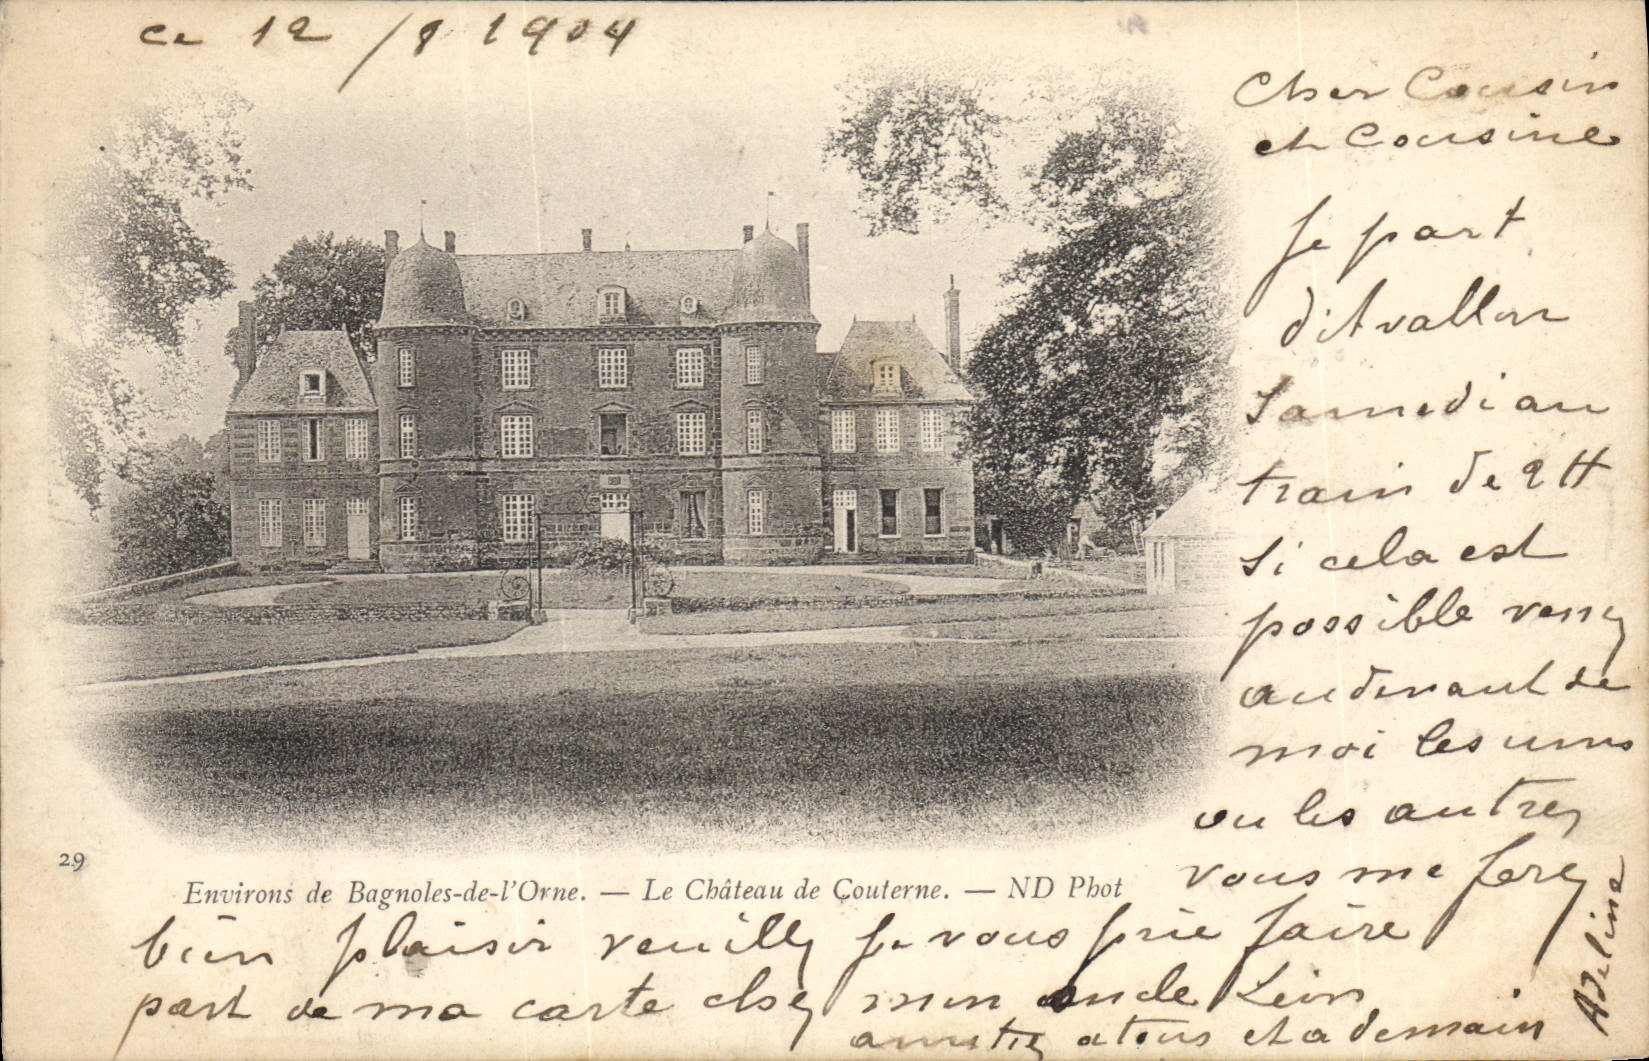 ce 12/8 1904
Cher Cousin
et Cousine
Je part
d'Avallon
Samedi au
train de 2 H
Si cela est
possible venez
audevant de
moi les uns
ou les autres
vous me ferez
29
Environs de Bagnoles-de-l'Orne. — Le Château de Couterne. — ND Phot
bien plaisir veuillez je vous prie faire
part de ma carte chez mon oncle Léon
amitiez a tous et a demain
Adeline